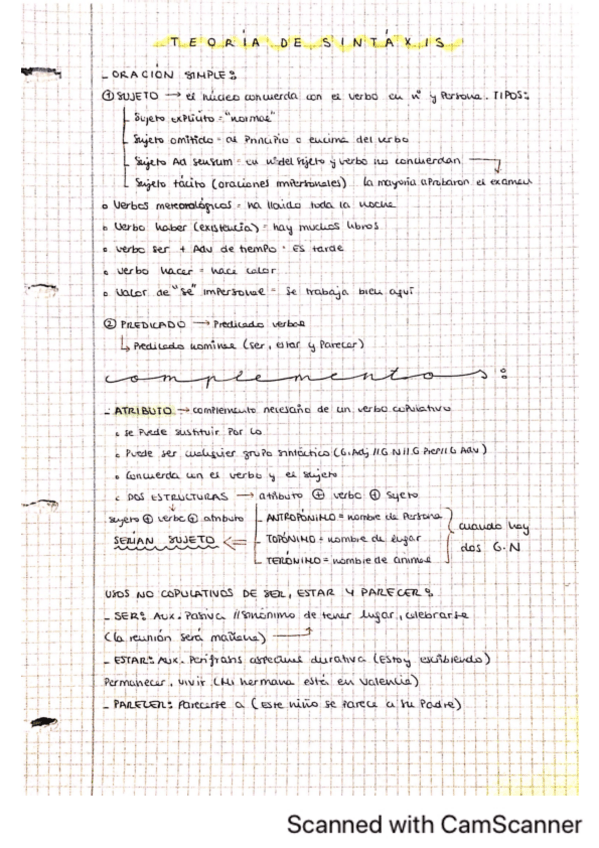 TEORÍA DE SINTÁXIS
- ORACIÓN SIMPLE:
① SUJETO → el núcleo concuerda con el verbo en nº y persona. TIPOS:
Sujeto explícito = "normal"
Sujeto omitido = al principio o encima del verbo
Sujeto Ad sensum = en nº del sujeto y verbo no concuerdan
Sujeto tácito (oraciones impersonales) la mayoría aprobaron el examen
• Verbos meteorológicos = ha lloido toda la noche
• Verbo haber (existencia) = hay muchos libros
• verbo ser + Adv de tiempo = Es tarde
• verbo hacer = hace calor
• valor de "se" impersonal = se trabaja bien aquí
② PREDICADO → Predicado verbal
↳ Predicado nominal (ser, estar y parecer)
complementos:
- ATRIBUTO → complemento necesario de un verbo copulativo
• se puede sustituir por lo
• Puede ser cualquier grupo sintáctico (G.Adj // G.N // G.Prep // G Adv)
• Concuerda con el verbo y el sujeto
• DOS ESTRUCTURAS → atributo ⊕ verbo ⊕ sujeto
sujeto ⊕ verbo ⊕ atributo ANTROPÓNIMO = nombre de persona cuando hay
SERÍAN SUJETO ⇐ TOPÓNIMO = nombre de lugar dos G.N
TERÓNIMO = nombre de animal
USOS NO COPULATIVOS DE SER, ESTAR Y PARECER:
- SER: Aux. Pasiva // sinónimo de tener lugar, celebrarse
(la reunión será mañana)
- ESTAR: Aux. Perífrasis aspectual durativa (Estoy escribiendo)
Permanecer, vivir (Mi hermana está en Valencia)
- PARECER: Parecerse a (este niño se parece a su padre)
Scanned with CamScanner